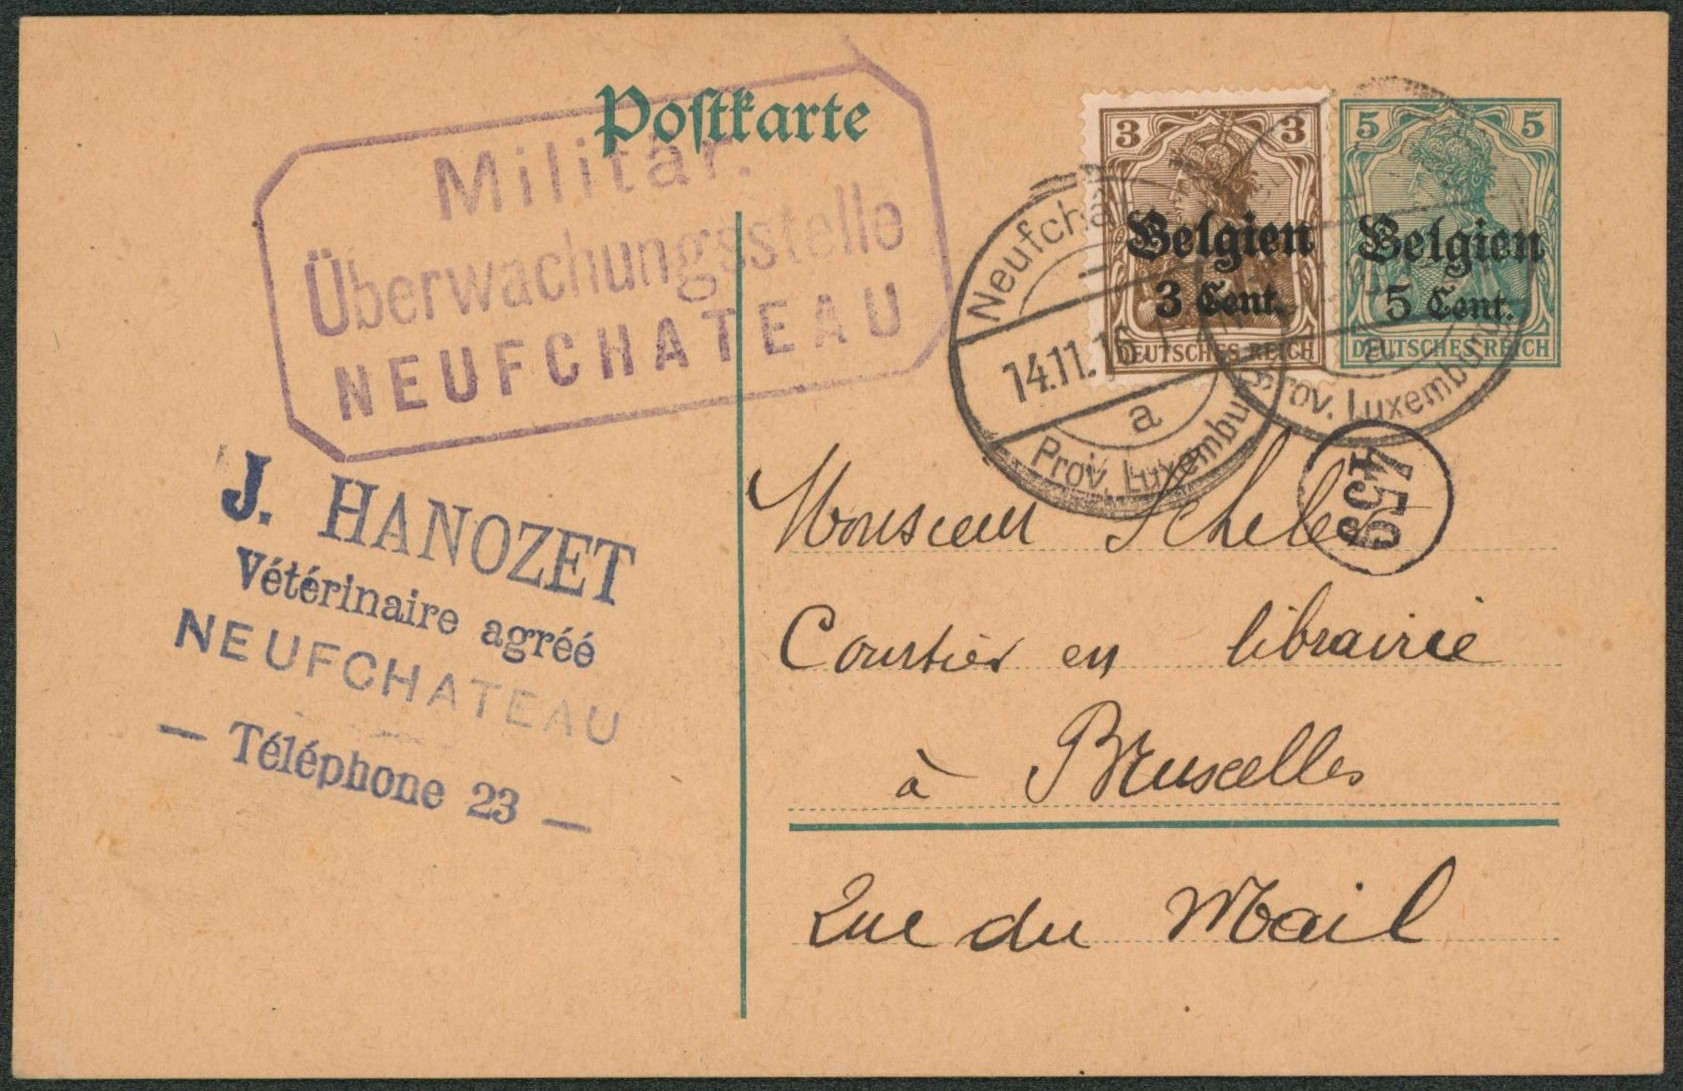 Postkarte
Militär.
Überwachungsstelle
NEUFCHATEAU
3 3
Belgien
3 Cent.
DEUTSCHES REICH
5 5
Belgien
5 Cent.
DEUTSCHES REICH
14.11.
a
Prov. Luxemburg
Prov. Luxemburg
459
J. HANOZET
Vétérinaire agréé
NEUFCHATEAU
— Téléphone 23 —
Monsieur
Courtier en librairie
à Bruxelles
Rue du Mail